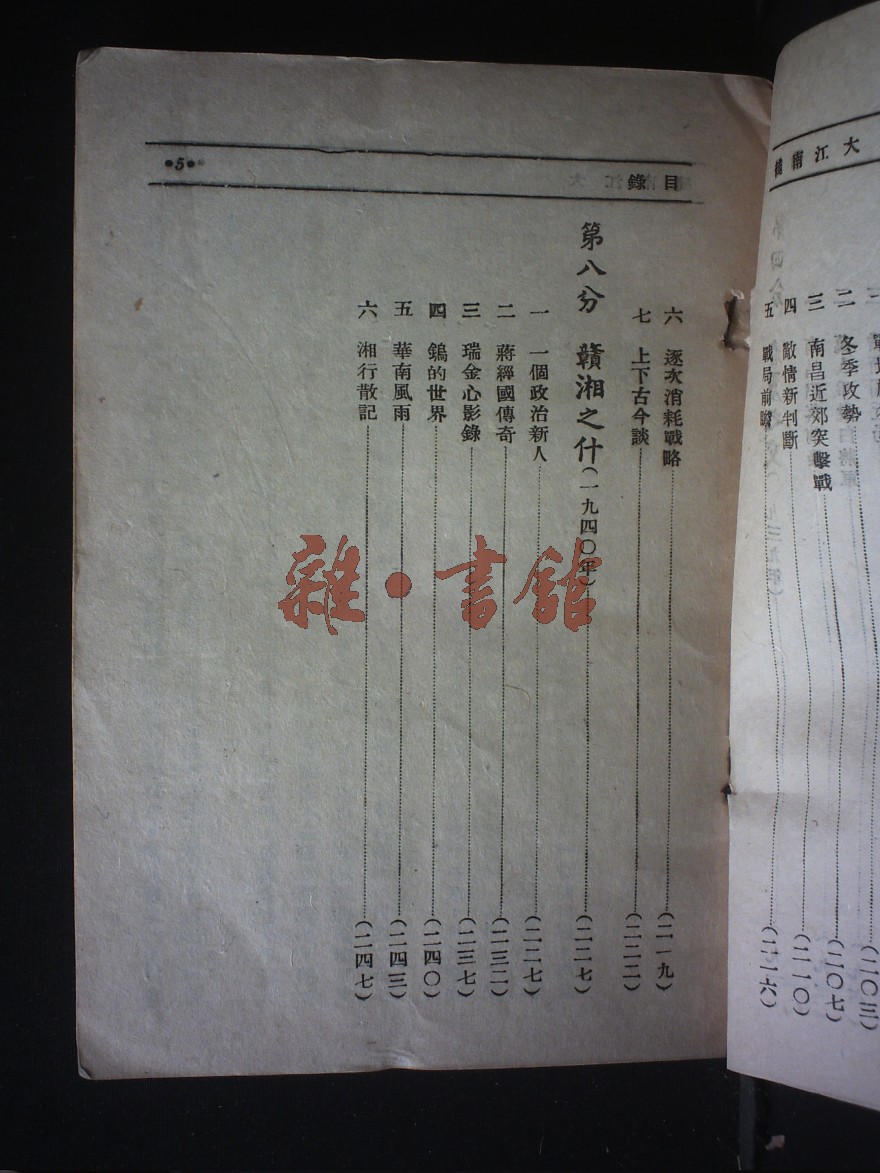 大江南線
二 冬季攻勢……(二〇七)
三 南昌近郊突擊戰……(二一〇)
四 敵情新判斷
五 戰局前瞻……(二一六)
目錄
•5•
六 逐次消耗戰略……(二一九)
七 上下古今談……(二二二)
第八分 贛湘之什(一九四〇年)……(二二七)
一 一個政治新人……(二二七)
二 蔣經國傳奇……(二三二)
三 瑞金心影錄……(二三七)
四 鎢的世界……(二四〇)
五 華南風雨……(二四三)
六 湘行散記……(二四七)
雜·書館